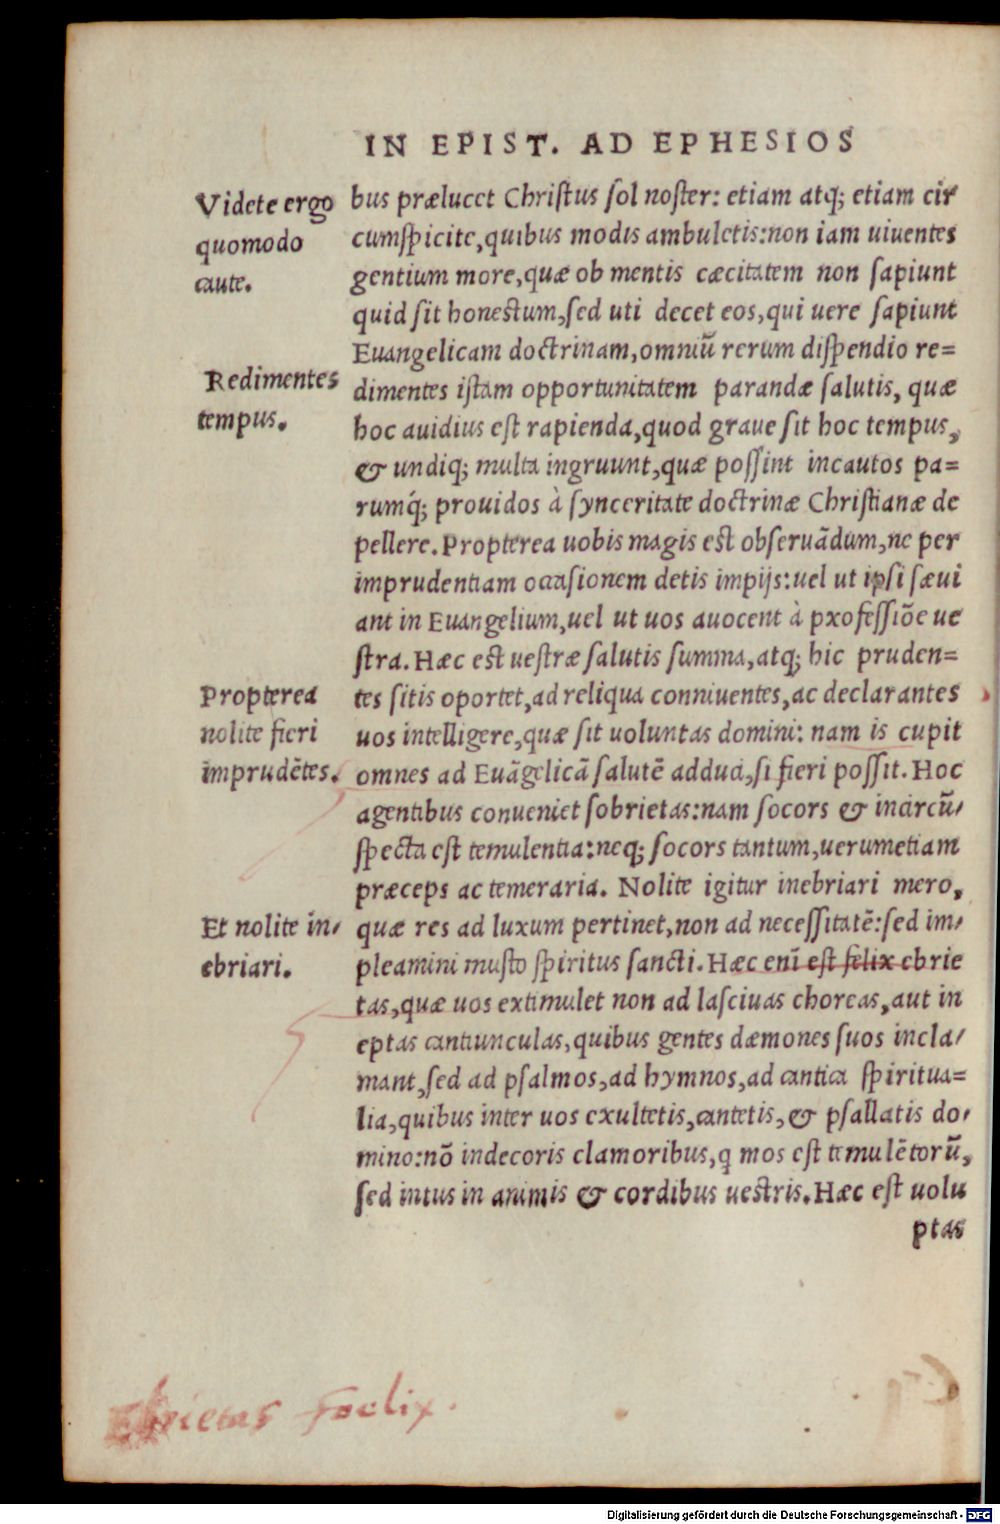 IN EPIST. AD EPHESIOS
Videte ergo
quomodo
caute.
bus prælucet Christus sol noster: etiam atq; etiam cir
cumspicite, quibus modis ambuletis: non iam uiuentes
gentium more, quæ ob mentis cæcitatem non sapiunt
quid sit honestum, sed uti decet eos, qui uere sapiunt
Euangelicam doctrinam, omniũ rerum dispendio re=
Redimentes
tempus.
dimentes istam opportunitatem parandæ salutis, quæ
hoc auidius est rapienda, quod graue sit hoc tempus,
& undiq; multa ingruunt, quæ possint incautos pa=
rumq́; prouidos à synceritate doctrinæ Christianæ de
pellere. Propterea uobis magis est obseruãdum, ne per
imprudentiam occasionem detis impijs: uel ut ipsi sæui
ant in Euangelium, uel ut uos auocent à pxofessiõe ue
stra. Hæc est uestræ salutis summa, atq; hic pruden=
Propterea
nolite fieri
imprudẽtes.
tes sitis oportet, ad reliqua conniuentes, ac declarantes
uos intelligere, quæ sit uoluntas domini: nam is cupit
omnes ad Euãgelicã salutẽ adduci, si fieri possit. Hoc
agentibus conueniet sobrietas: nam socors & incircũ/
specta est temulentia: neq; socors tantum, uerumetiam
præceps ac temeraria. Nolite igitur inebriari mero,
Et nolite in/
ebriari.
quæ res ad luxum pertinet, non ad necessitatẽ: sed im/
pleamini musto spiritus sancti. Hæc enĩ est felix ebrie
tas, quæ uos extimulet non ad lasciuas choreas, aut in
eptas cantiunculas, quibus gentes dæmones suos incla/
mant, sed ad psalmos, ad hymnos, ad cantica spiritua=
lia, quibus inter uos exultetis, cantetis, & psallatis do/
mino: nõ indecoris clamoribus, q mos est temulẽtorũ,
sed intus in animis & cordibus uestris. Hæc est uolu
ptas
Ebrietas foelix.
Digitalisierung gefördert durch die Deutsche Forschungsgemeinschaft - DFG